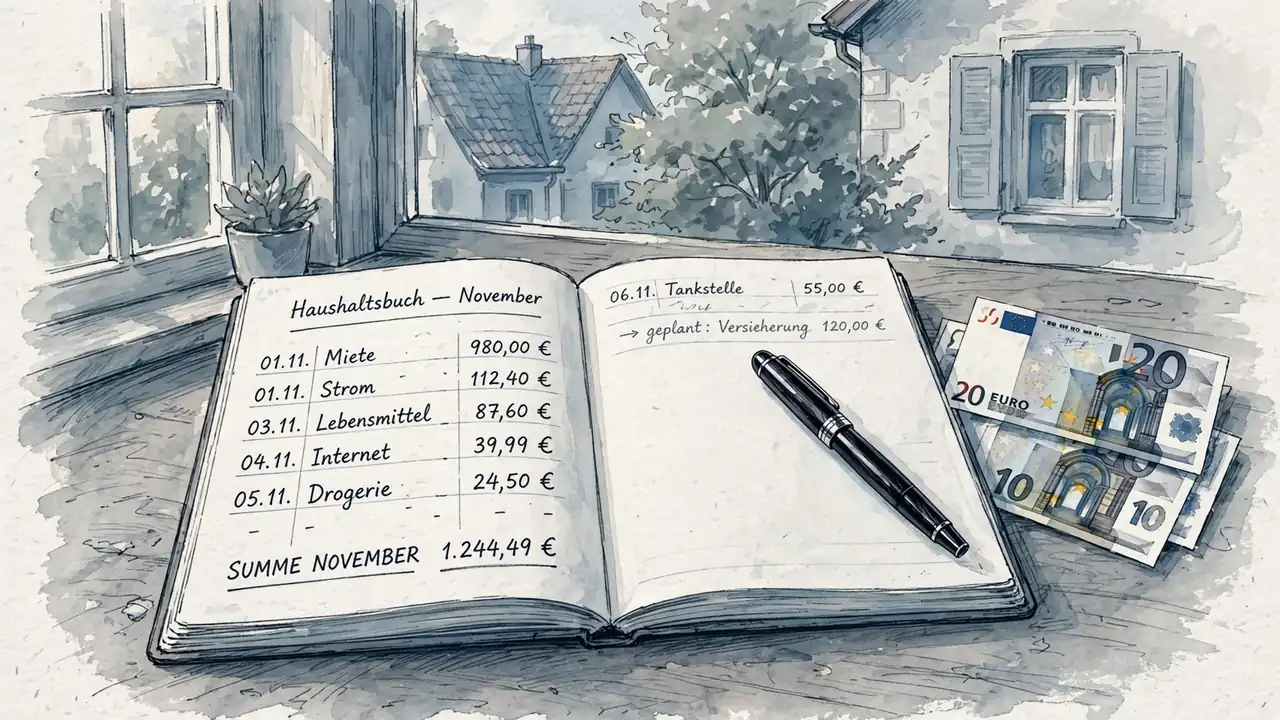 Haushaltsbuch — November
01.11. Miete 980,00 €
01.11. Strom 112,40 €
03.11. Lebensmittel 87,60 €
04.11. Internet 39,99 €
05.11. Drogerie 24,50 €
SUMME NOVEMBER 1.244,49 €
06.11. Tankstelle 55,00 €
→ geplant: Versicherung 120,00 €
20
20 EURO
10
10